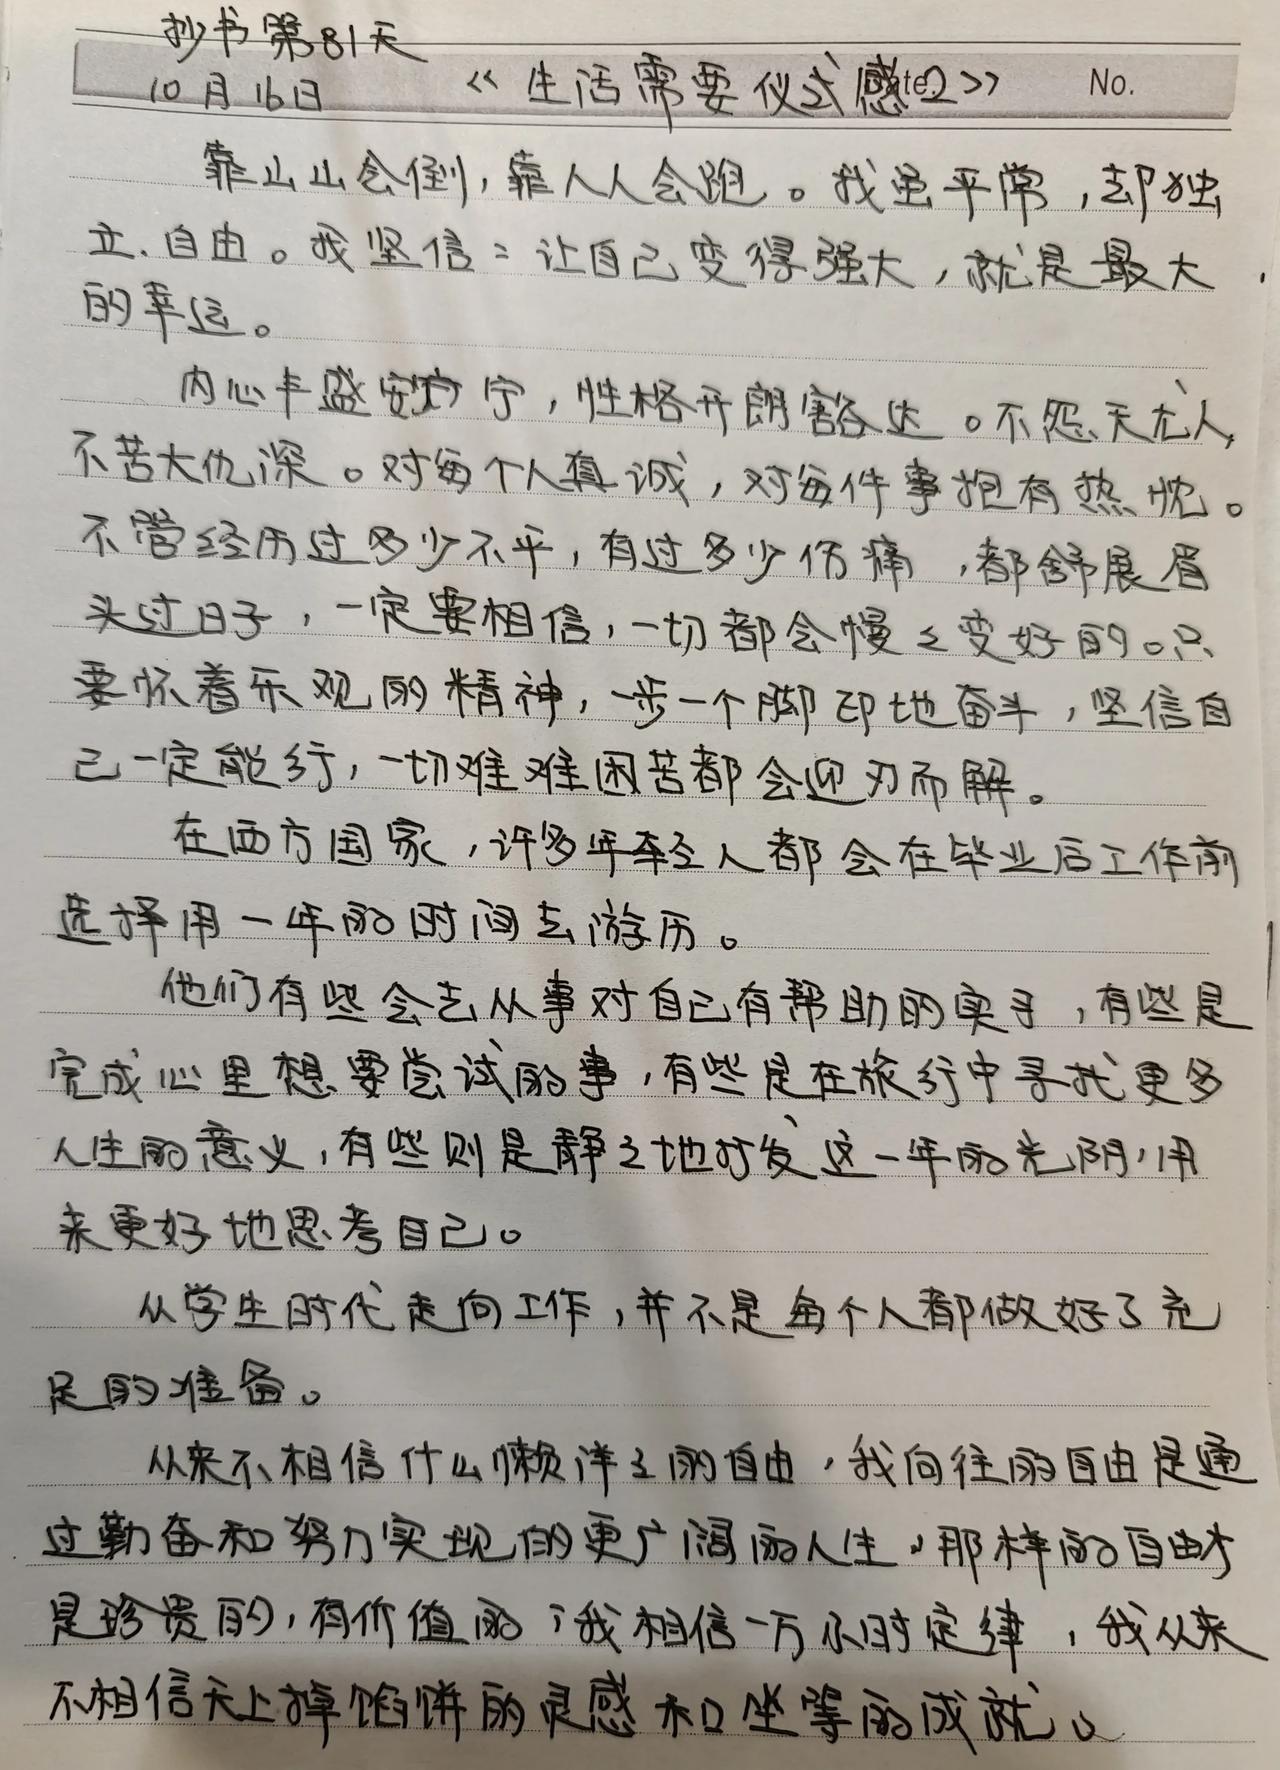 抄书第81天
10月16日 《生活需要仪式感2》 No.
靠山山会倒，靠人人会跑。我虽平常，却独
立、自由。我坚信：让自己变得强大，就是最大
的幸运。
内心丰盛安宁，性格开朗豁达。不怨天尤人，
不苦大仇深。对每个人真诚，对每件事抱有热忱。
不管经历过多少不平，有过多少伤痛，都舒展眉
头过日子，一定要相信，一切都会慢々变好的。只
要怀着乐观的精神，一步一个脚印地奋斗，坚信自
己一定能行，一切难难困苦都会迎刃而解。
在西方国家，许多年轻人都会在毕业后工作前
选择用一年的时间去游历。
他们有些会去从事对自己有帮助的实习，有些是
完成心里想要尝试的事，有些是在旅行中寻找更多
人生的意义，有些则是静々地打发这一年的光阴，用
来更好地思考自己。
从学生时代走向工作，并不是每个人都做好了充
足的准备。
从来不相信什么懒洋々的自由，我向往的自由是通
过勤奋和努力实现的更广阔的人生，那样的自由才
是珍贵的，有价值的；我相信一万小时定律，我从来
不相信天上掉馅饼的灵感和坐等的成就。